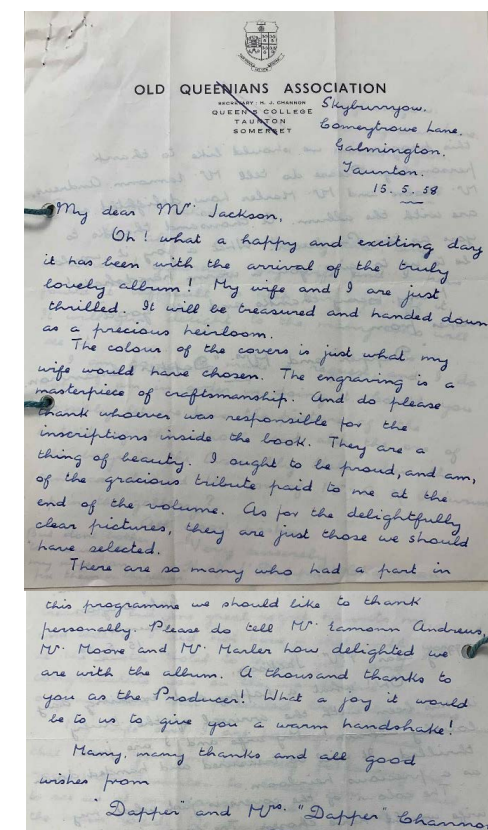 OLD QUEENIANS ASSOCIATION
SECRETARY: H. J. CHANNON
QUEEN'S COLLEGE
TAUNTON
SOMERSET
Skyburryow.
Comeytrowe Lane,
Galmington.
Taunton.
15. 5. 58
My dear Mr. Jackson,
Oh! what a happy and exciting day
it has been with the arrival of the truly
lovely album! My wife and I are just
thrilled. It will be treasured and handed down
as a precious heirloom.
The colour of the covers is just what my
wife would have chosen. The engraving is a
masterpiece of craftsmanship. And do please
thank whoever was responsible for the
inscriptions inside the book. They are a
thing of beauty. I ought to be proud, and am,
of the gracious tribute paid to me at the
end of the volume. As for the delightfully
clear pictures, they are just those we should
have selected.
There are so many who had a part in
this programme we should like to thank
personally. Please do tell Mr. Eamonn Andrews,
Mr. Moore and Mr. Marler how delighted we
are with the album. A thousand thanks to
you as the Producer! What a joy it would
be to us to give you a warm handshake!
Many, many thanks and all good
wishes from
"Dapper" and Mrs. "Dapper" Channo